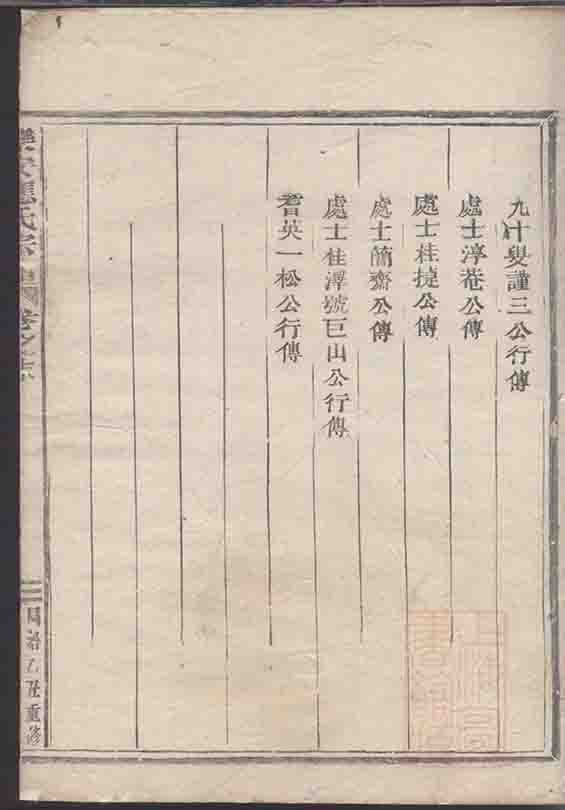 九十叟謹三公行傳
處士淳菴公傳
處士桂㨗公傳
處士簡齋公傳
處士桂潭號巨山公行傳
耆英一松公行傳
應氏宗譜 卷之
同治乙丑重修